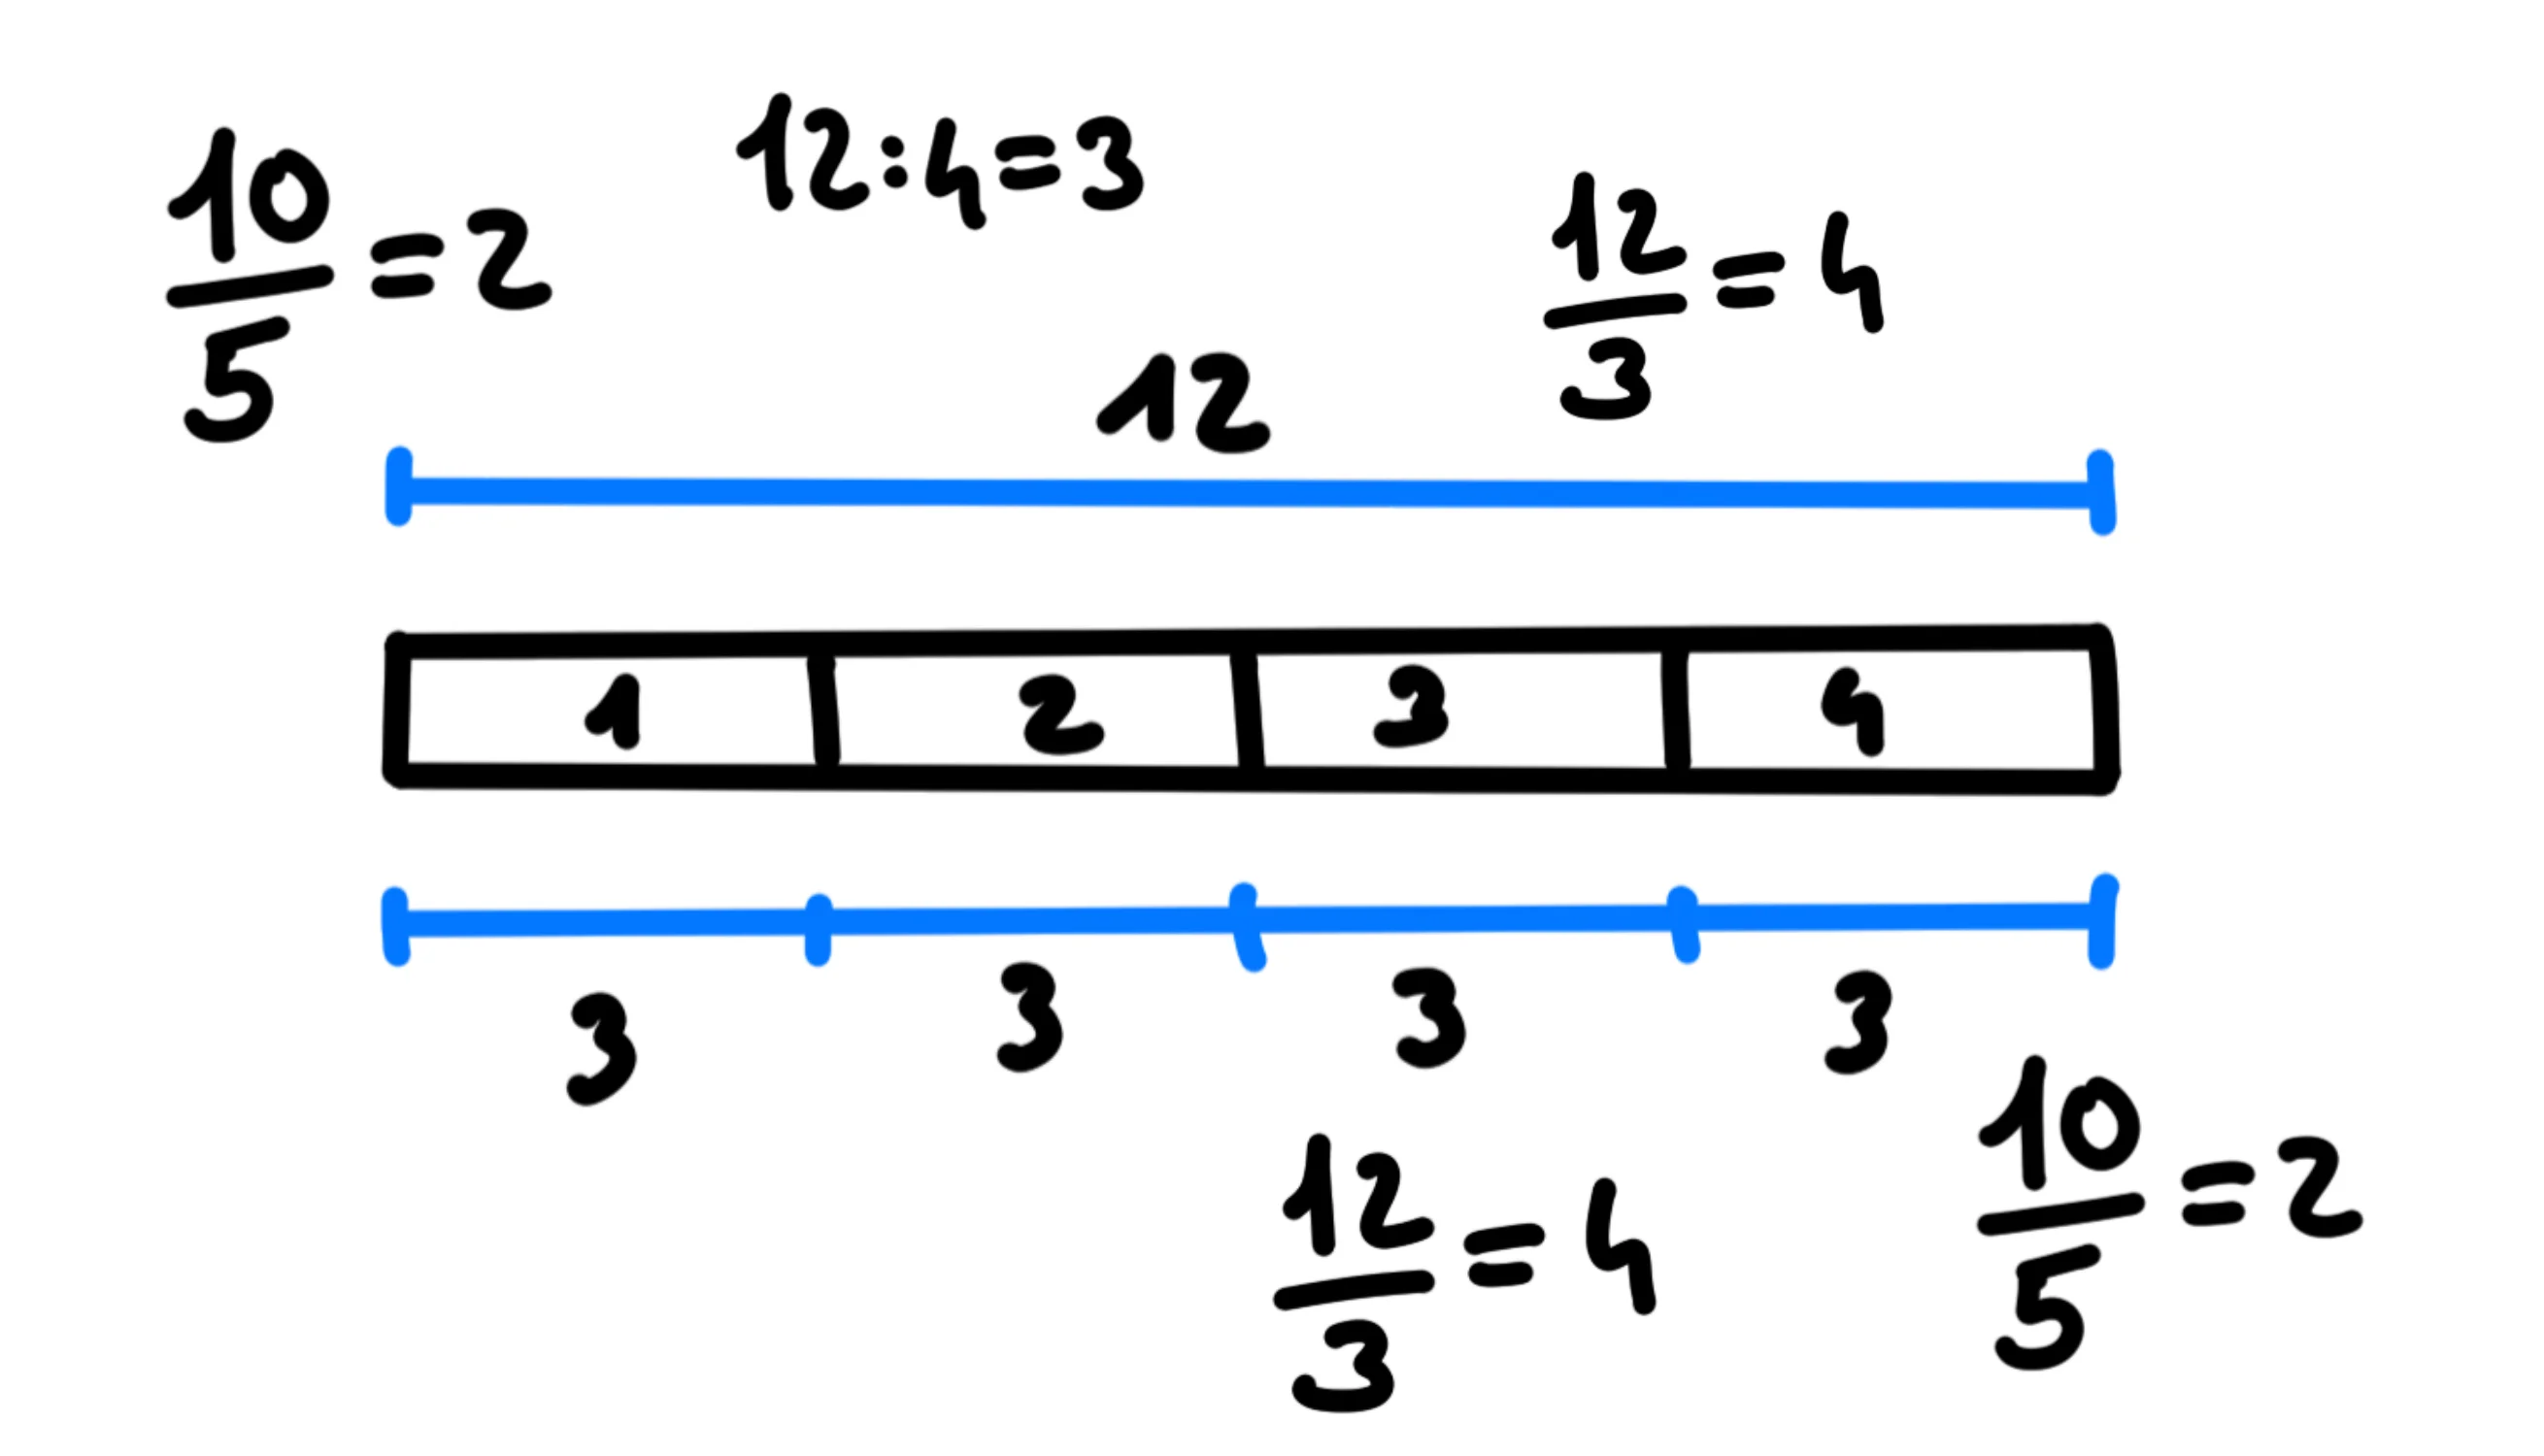 12:4=3
10/5=2
12/3=4
12
1 2 3 4
3 3 3 3
12/3=4
10/5=2